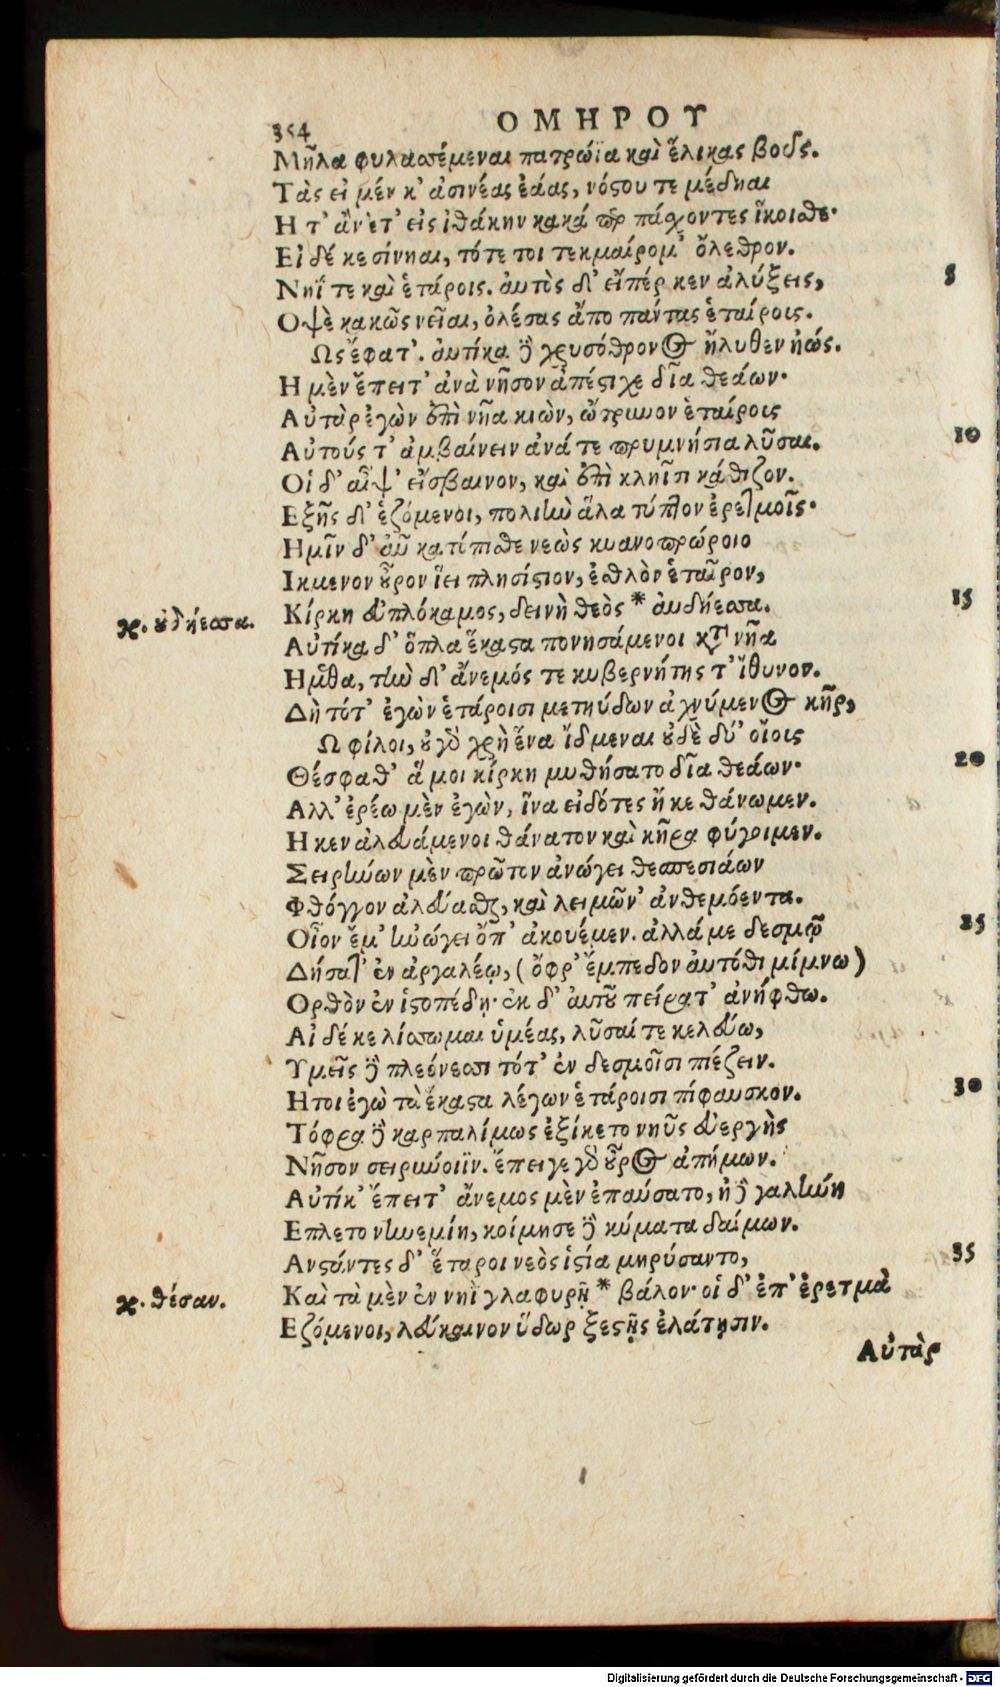 354
ΟΜΗΡΟΥ
Μῆλα φυλασσέμεναι πατρώϊα καὶ ἕλικας βοῦς.
Τὰς εἰ μέν κ' ἀσινέας ἐάας, νόςου τε μέδηαι
Η τ' ἂν ἔτ' εἰς ἰθάκην κακά περ πάχοντες ἵκοισθε·
Εἰ δέ κε σίνηαι, τότε τοι τεκμαίρομ' ὄλεθρον.
5
Νηΐ τε καὶ ἑτάροις. αὐτὸς δ' εἴπέρ κεν ἀλύξεις,
Οψὲ κακῶς νεῖαι, ὀλέσας ἄπο πάντας ἑταίροις.
Ως ἔφατ'. αὐτίκα δὲ χρυσόθρονος ἤλυθεν ἠώς.
Η μὲν ἔπειτ' ἀνὰ νῆσον ἀπέςιχε δῖα θεάων·
Αὐτὰρ ἐγὼν ἐπὶ νῆα κιὼν, ὤτρυνον ἑταίροις
10
Αὐτούς τ' ἀμβαίνειν ἀνά τε πρυμνήσια λῦσαι.
Οἱ δ' αἶψ' εἴσβαινον, καὶ ἐπὶ κληῖσι κάθιζον.
Εξῆς δ' ἑζόμενοι, πολιὴν ἅλα τύπτον ἐρετμοῖς·
Ημῖν δ' αὖ κατόπισθε νεὼς κυανοπρώροιο
Ικμενον οὖρον ἵει πλησίςιον, ἐσθλὸν ἑταῖρον,
15
Κίρκη ἐυπλόκαμος, δεινὴ θεὸς * αὐδήεσσα.
γρ. οὐδήεσσα.
Αὐτίκα δ' ὅπλα ἕκαςα πονησάμενοι κατὰ νῆα
Ημεθα, τὴν δ' ἄνεμός τε κυβερνήτης τ' ἴθυνον.
Δὴ τότ' ἐγὼν ἑτάροισι μετηύδων ἀχνύμενος κῆρ,
Ω φίλοι, οὐ γὰρ χρὴ ἕνα ἴδμεναι οὐδὲ δύ' οἴοις
20
Θέσφαθ' ἅ μοι κίρκη μυθήσατο δῖα θεάων·
Αλλ' ἐρέω μὲν ἐγὼν, ἵνα εἰδότες ἤ κε θάνωμεν.
Η κεν ἀλευάμενοι θάνατον καὶ κῆρα φύγοιμεν.
Σειρήνων μὲν πρῶτον ἀνώγει θεσπεσιάων
Φθόγγον ἀλεύασθαι, καὶ λειμῶν' ἀνθεμόεντα.
25
Οἶον ἔμ' ἠνώγει ὄπ' ἀκουέμεν. ἀλλά με δεσμῷ
Δήσατ' ἐν ἀργαλέῳ, (ὄφρ' ἔμπεδον αὐτόθι μίμνω)
Ορθὸν ἐν ἱςοπέδῃ· ἐκ δ' αὐτοῦ πείρατ' ἀνήφθω.
Αἰ δέ κε λίσσωμαι ὑμέας, λῦσαί τε κελεύω,
Υμεῖς δὲ πλεόνεσσι τότ' ἐν δεσμοῖσι πιέζειν.
30
Ητοι ἐγὼ τὰ ἕκαςα λέγων ἑτάροισι πίφαυσκον.
Τόφρα δὲ καρπαλίμως ἐξίκετο νηῦς ἐυεργὴς
Νῆσον σειρήνοιϊν. ἔπειγε γὰρ οὖρος ἀπήμων.
Αὐτίκ' ἔπειτ' ἄνεμος μὲν ἐπαύσατο, ἠδὲ γαλήνη
Επλετο νηνεμίη, κοίμησε δὲ κύματα δαίμων.
35
Ανςάντες δ' ἕταροι νεὸς ἱςία μηρύσαντο,
Καὶ τὰ μὲν ἐν νηῒ γλαφυρῇ * βάλον· οἱ δ' ἐπ' ἐρετμὰ
γρ. θέσαν.
Εζόμενοι, λεύκαινον ὕδωρ ξεςῇς ἐλάτῃσιν.
Αὐτὰρ
Digitalisierung gefördert durch die Deutsche Forschungsgemeinschaft - DFG